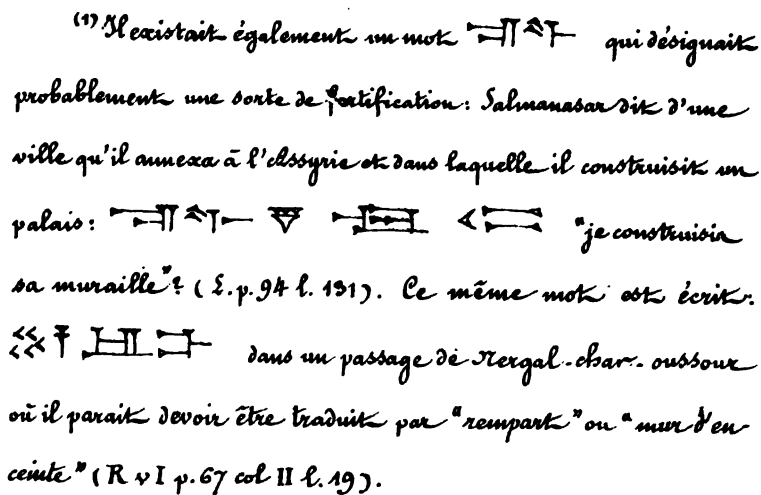 (1) Il existait également un mot qui désignait
probablement une sorte de fortification: Salmanasar dit d'une
ville qu'il annexa à l'Assyrie et dans laquelle il construisit un
palais: "je construisis
sa muraille"? (L. p. 94 l. 131). Ce même mot est écrit:
dans un passage de Nergal-char-oussour
où il parait devoir être traduit par "rempart" ou "mur d'en-
ceinte" (R v I p. 67 col II l. 19).